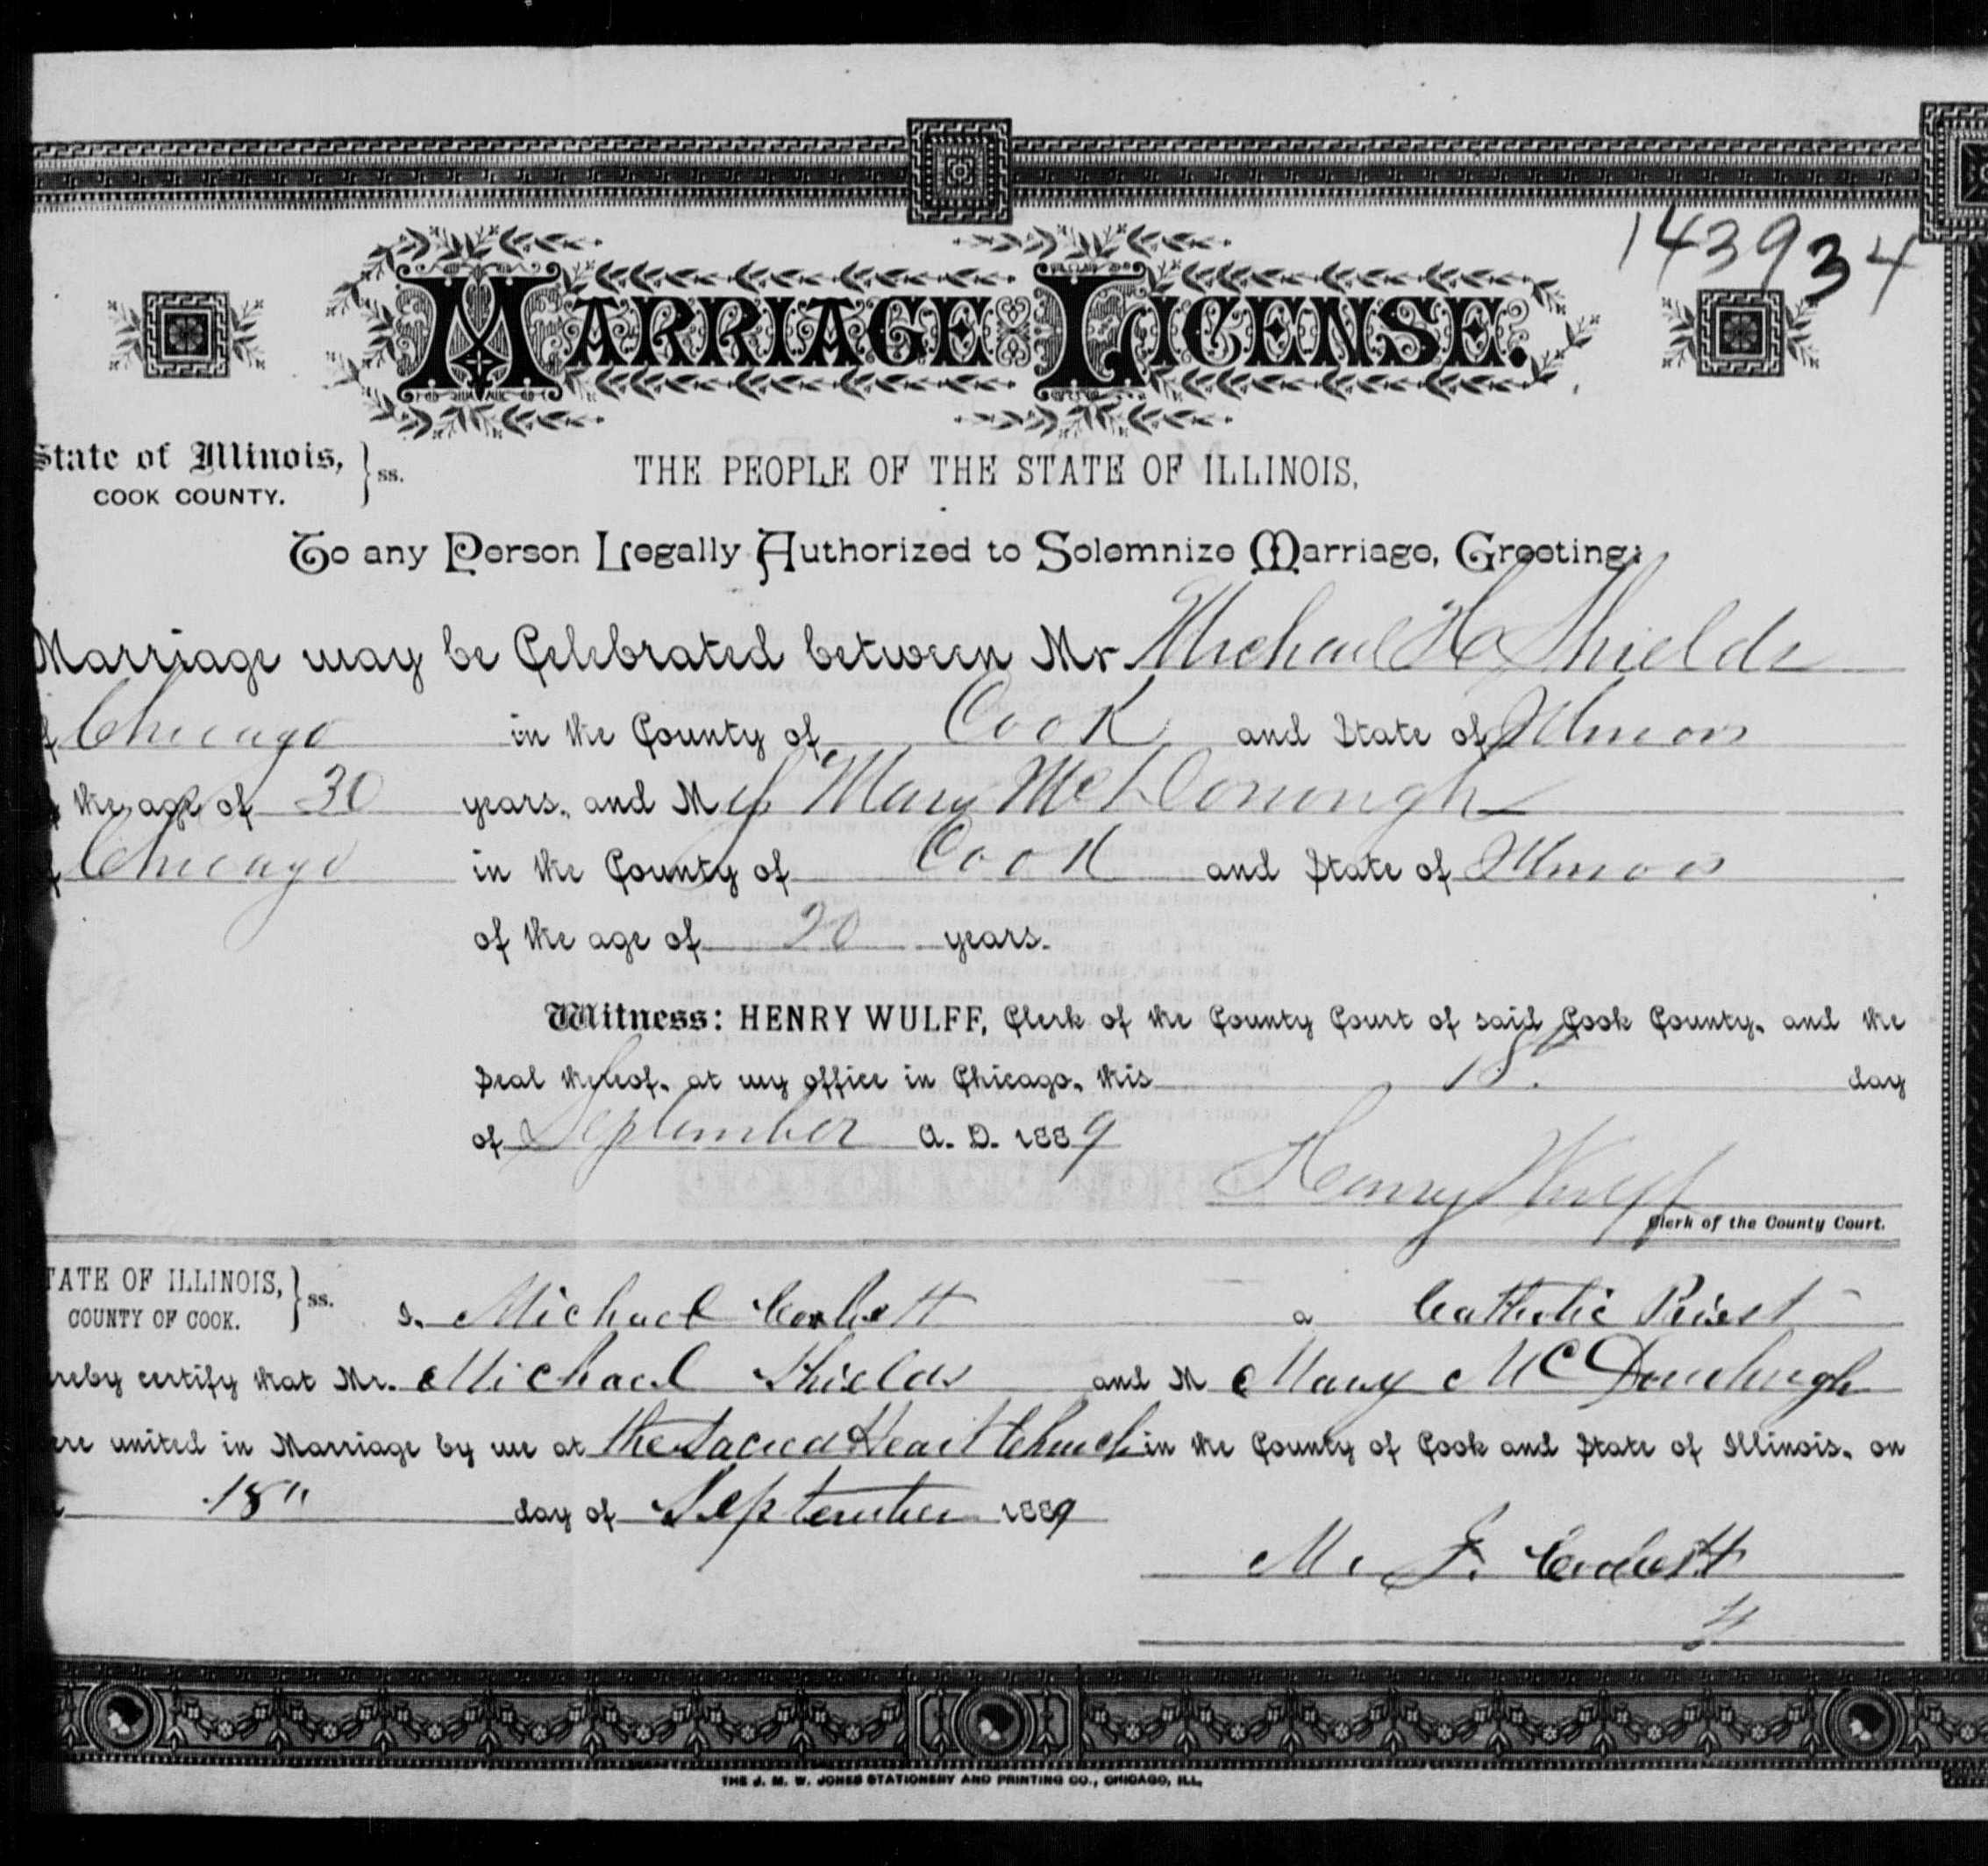 143934
MARRIAGE LICENSE.
State of Illinois, } ss.
COOK COUNTY.
THE PEOPLE OF THE STATE OF ILLINOIS,
To any Person Legally Authorized to Solemnize Marriage, Greeting:
Marriage may be Celebrated between Mr Michael H Shields
of Chicago in the County of Cook and State of Illinois
the age of 30 years, and Miss Mary McDonough
of Chicago in the County of Cook and State of Illinois
of the age of 20 years.
Witness: HENRY WULFF, Clerk of the County Court of said Cook County, and the
Seal thereof, at my office in Chicago, this 18th day
of September A. D. 1889
Henry Wulff
Clerk of the County Court.
TATE OF ILLINOIS, } ss.
COUNTY OF COOK.
I, Michael Corbett a Catholic Priest
reby certify that Mr. Michael Shields and M Mary McDonough
ere united in Marriage by me at the Sacred Heart Church in the County of Cook and State of Illinois, on
18" day of September 1889
M. J. Corbett
THE J. M. W. JONES STATIONERY AND PRINTING CO., CHICAGO, ILL.